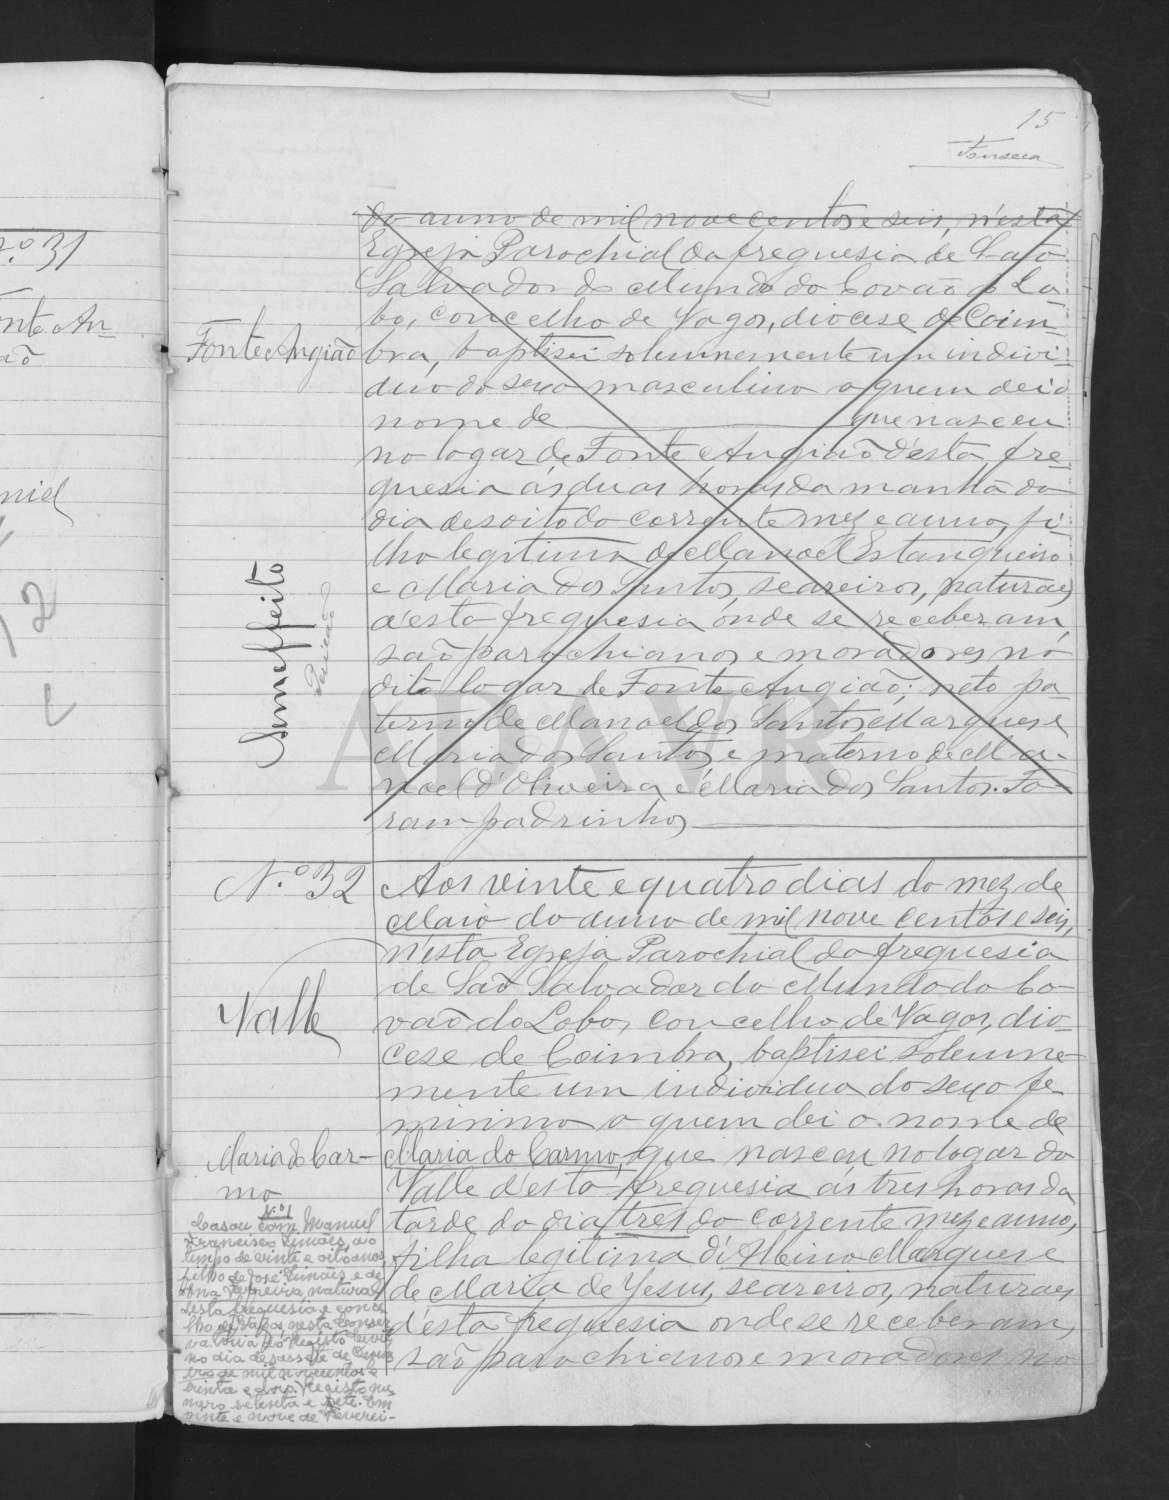 15
Fonseca
do anno de mil nove centos e seis, n'esta
Egreja Parochial da freguesia de São
Salvador do Mundo do Covão do Lo-
bo, concelho de Vagos, diocese de Coim-
Fonte Angião
bra, baptisei solemnemente um indivi-
duo do sexo masculino a quem dei o
nome de que nasceu
no logar de Fonte Angião d'esta fre-
guesia ás duas horas da manhã do
dia desoito do corrente mez e anno, fi-
lho legitimo de Manoel Estanqueiro
e Maria dos Santos, seareiros, naturaes
d'esta freguesia onde se receberam,
são parochianos e moradores no
dito logar de Fonte Angião; neto pa-
terno de Manoel dos Santos Marques e
Maria dos Santos e materno de Ma-
noel d'Oliveira e Maria dos Santos. Fo-
ram padrinhos
Sem effeito
ADAVR
N.º 32
Aos vinte e quatro dias do mez de
Maio do anno de mil nove centos e seis,
n'esta Egreja Parochial da freguesia
de São Salvador do Mundo do Co-
Valle
vão do Lobo, concelho de Vagos, dio-
cese de Coimbra, baptisei solemne-
mente um individuo do sexo fe-
minino a quem dei o nome de
Maria do Car-
mo
Maria do Carmo, que nasceu no logar do
Valle d'esta freguesia ás tres horas da
tarde do dia tres do corrente mez e anno,
filha legitima d'Albino Marques e
de Maria de Jesus, seareiros, naturaes
d'esta freguesia onde se receberam,
são parochianos e moradores no
N.º 1
Casou com Manuel
Francisco Simões, ao
tempo de vinte e oito anos,
filho de José Simões e de
Ana naturais
desta freguesia e conce-
lho de Vagos, nesta Conser-
vatória do Registo Civil
no dia desassete de
de mil novecentos e
trinta e Registo nu-
mero setenta e sete. Em
vinte e nove de Feverei-
n.º 31
nte An-
ão
niel